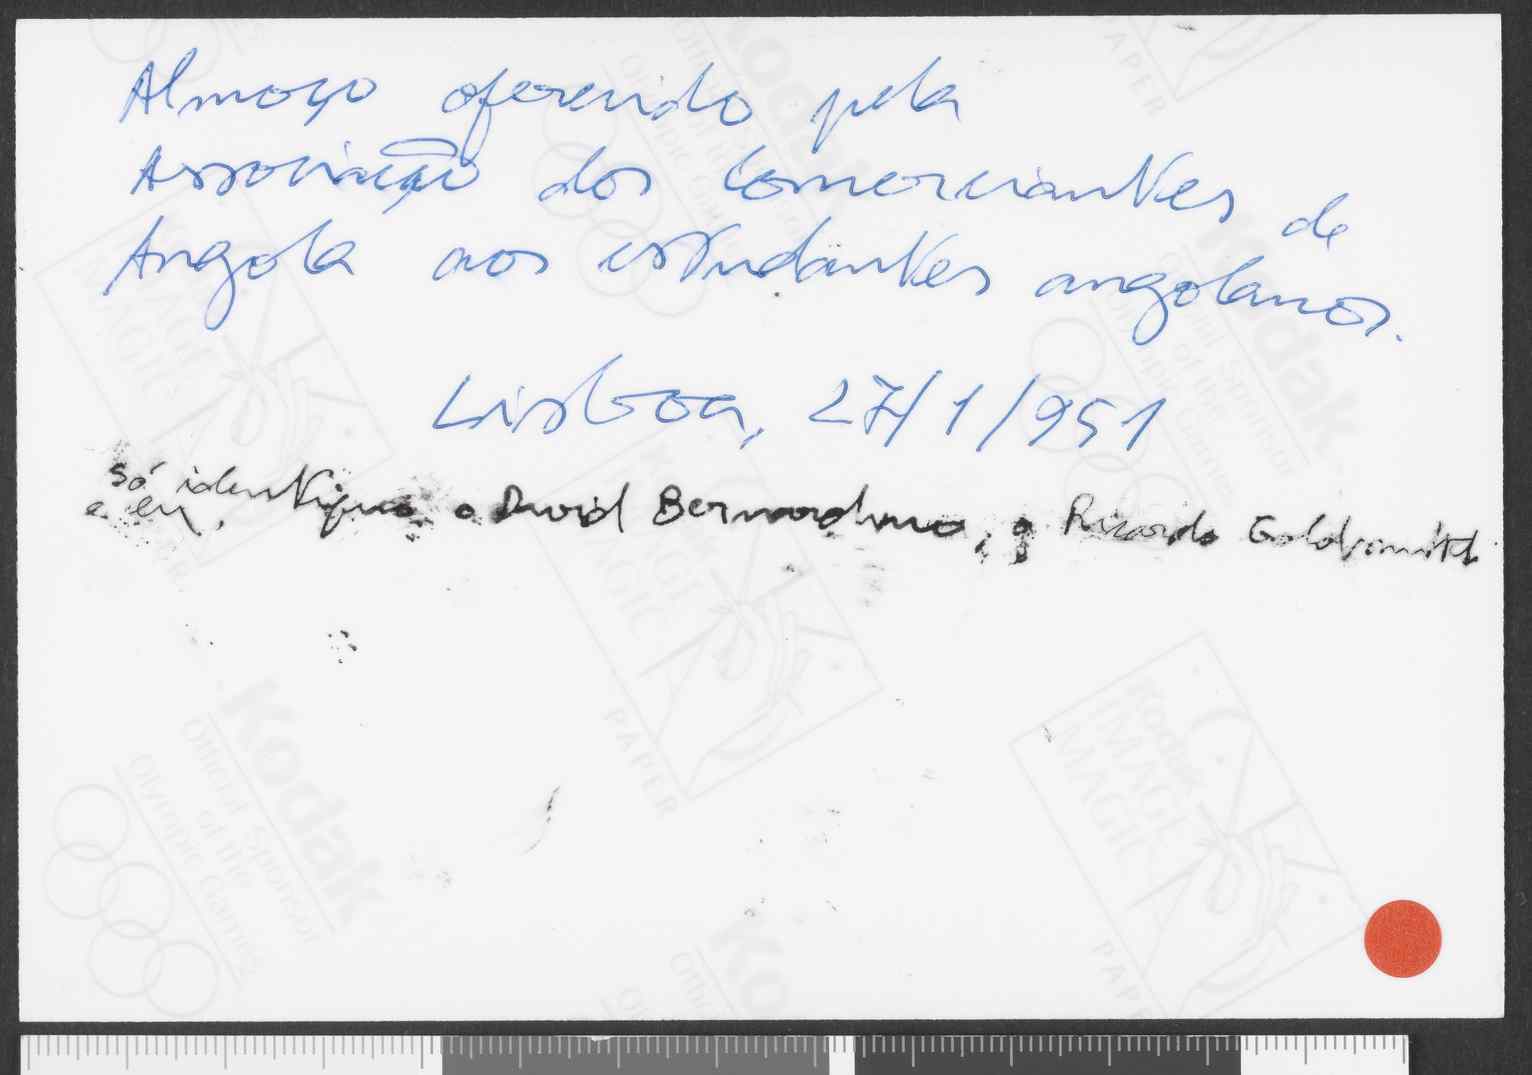 Almoço oferecido pela
Associação dos Comerciantes de
Angola aos estudantes angolanos.
Lisboa, 27/1/951
Só identifiquei o David Bernardino, o Ricardo Goldsmith
e eu.
Kodak
Official Sponsor
of the
Olympic Games
Kodak
IMAGE
MAGIC
PAPER